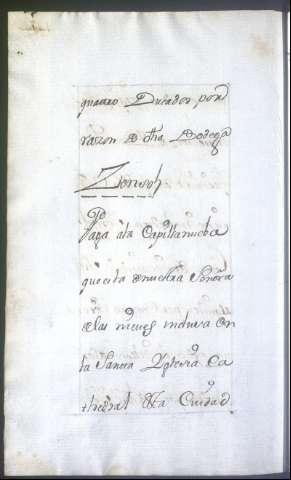 quatro Ducados, por
razon de dha Bodega
Zensoh
Paga ala Capilla nueba
que esta de nuestra Señora
de las nieves inclusa en
la Sancta Yglesia Ca
thedral dsta Ciudad